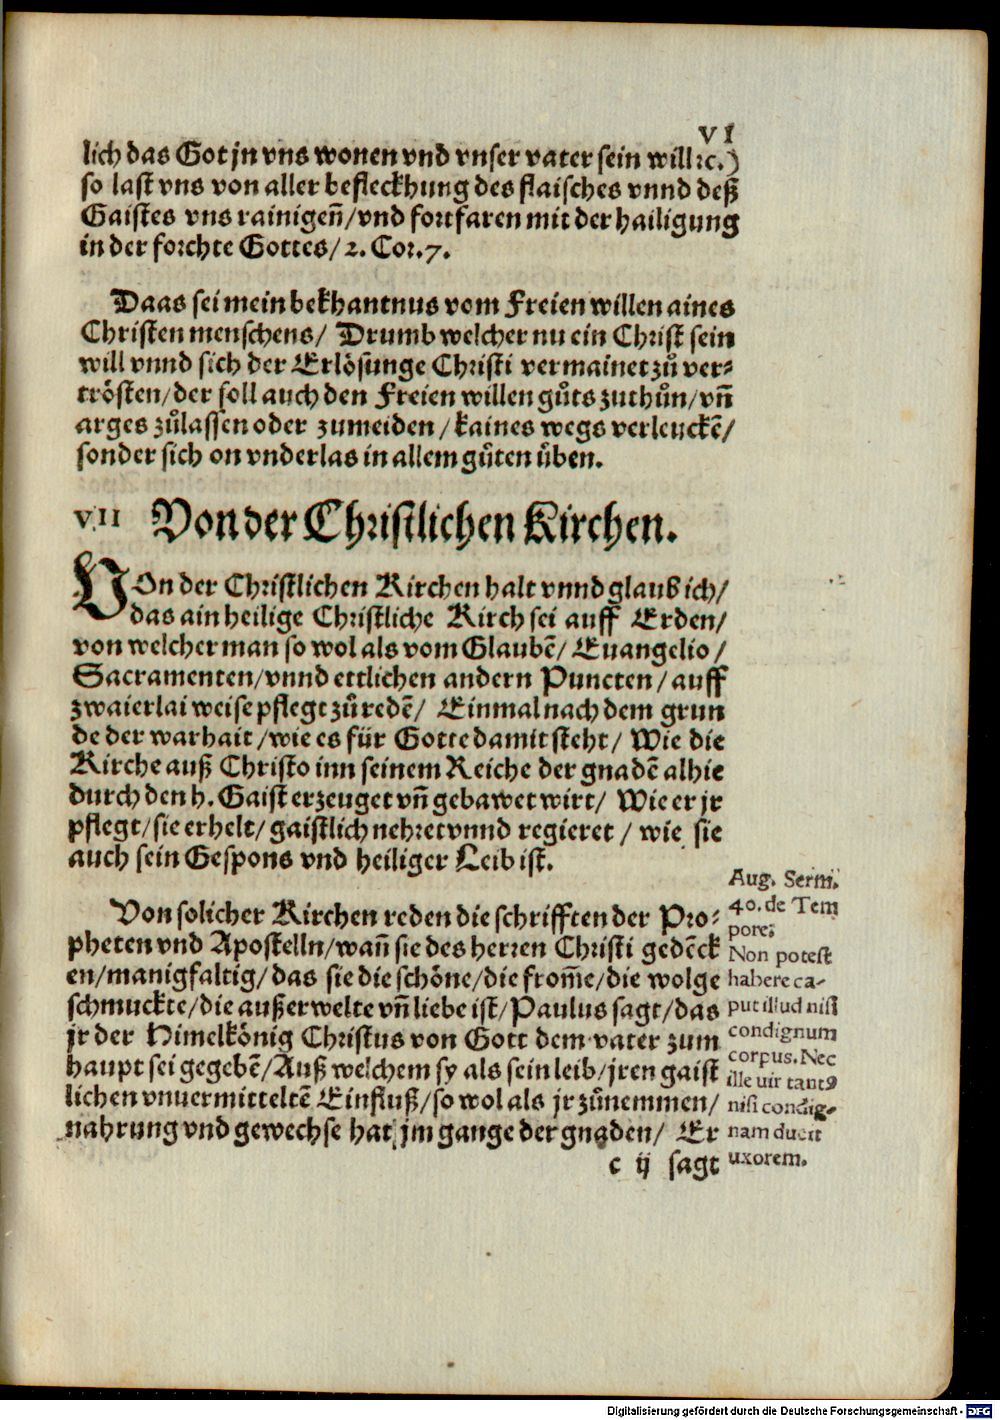 VI
lich das Got jn vns wonen vnd vnser vater sein will ꝛc.)
so last vns von aller befleckhung des flaisches vnnd deß
Gaistes vns rainigen̄/vnd fortfaren mit der hailigung
in der forchte Gottes/2. Cor.7.
Daas sei mein bekhantnus vom Freien willen aines
Christen menschens/ Drumb welcher nu ein Christ sein
will vnnd sich der Erlösunge Christi vermainet zů ver-
trösten/der soll auch den Freien willen gůts zuthůn/vn̄
arges zůlassen oder zumeiden/kaines wegs verleuckē/
sonder sich on vnderlas in allem gůten üben.
VII Von der Christlichen Kirchen.
VOn der Christlichen Kirchen halt vnnd glaub ich/
das ain heilige Christliche Kirch sei auff Erden/
von welcher man so wol als vom Glaubē/ Euangelio/
Sacramenten/vnnd ettlichen andern Puncten/auff
zwaierlai weise pflegt zů redē/ Einmal nach dem grun
de der warhait/wie es für Gotte damit steht/ Wie die
Kirche auß Christo inn seinem Reiche der gnadē alhie
durch den h. Gaist erzeuget vn̄ gebawet wirt/ Wie er jr
pflegt/sie erhelt/gaistlich nehret vnnd regieret/ wie sie
auch sein Gespons vnd heiliger Leib ist.
Von solicher Kirchen reden die schrifften der Pro-
pheten vnd Apostelln/wan̄ sie des herren Christi gedēck
en/manigfaltig/das sie die schöne/die from̄e/die wolge
schmuckte/die außerwelte vn̄ liebe ist/Paulus sagt/das
jr der Himelkönig Christus von Gott dem vater zum
haupt sei gegebē/Auß welchem sy als sein leib/jren gaist
lichen vnuermitteltē Einfluß/so wol als jr zůnemmen/
nahrung vnd gewechse hat jm gange der gnaden/ Er
c ij sagt
Aug. Serm.
40. de Tem
pore:
Non potest
habere ca-
put illud nisi
condignum
corpus. Nec
ille uir tantꝰ
nisi condig-
nam ducit
uxorem.
Digitalisierung gefördert durch die Deutsche Forschungsgemeinschaft - DFG